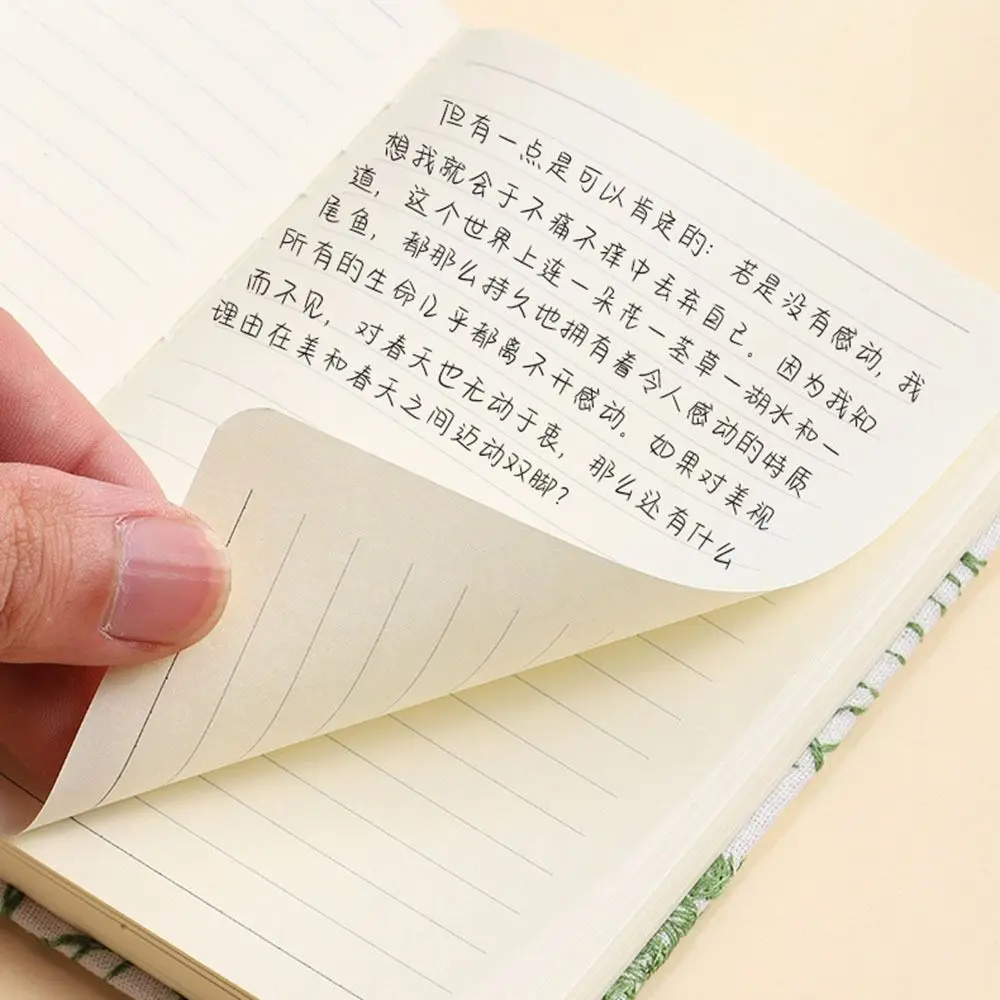 但有一点是可以肯定的：若是没有感动，我
想我就会于不痛不痒中丢弃自己。因为我知
道，这个世界上连一朵花一茎草一湖水和一
尾鱼，都那么持久地拥有着令人感动的特质
所有的生命几乎都离不开感动。如果对美视
而不见，对春天也无动于衷，那么还有什么
理由在美和春天之间迈动双脚？